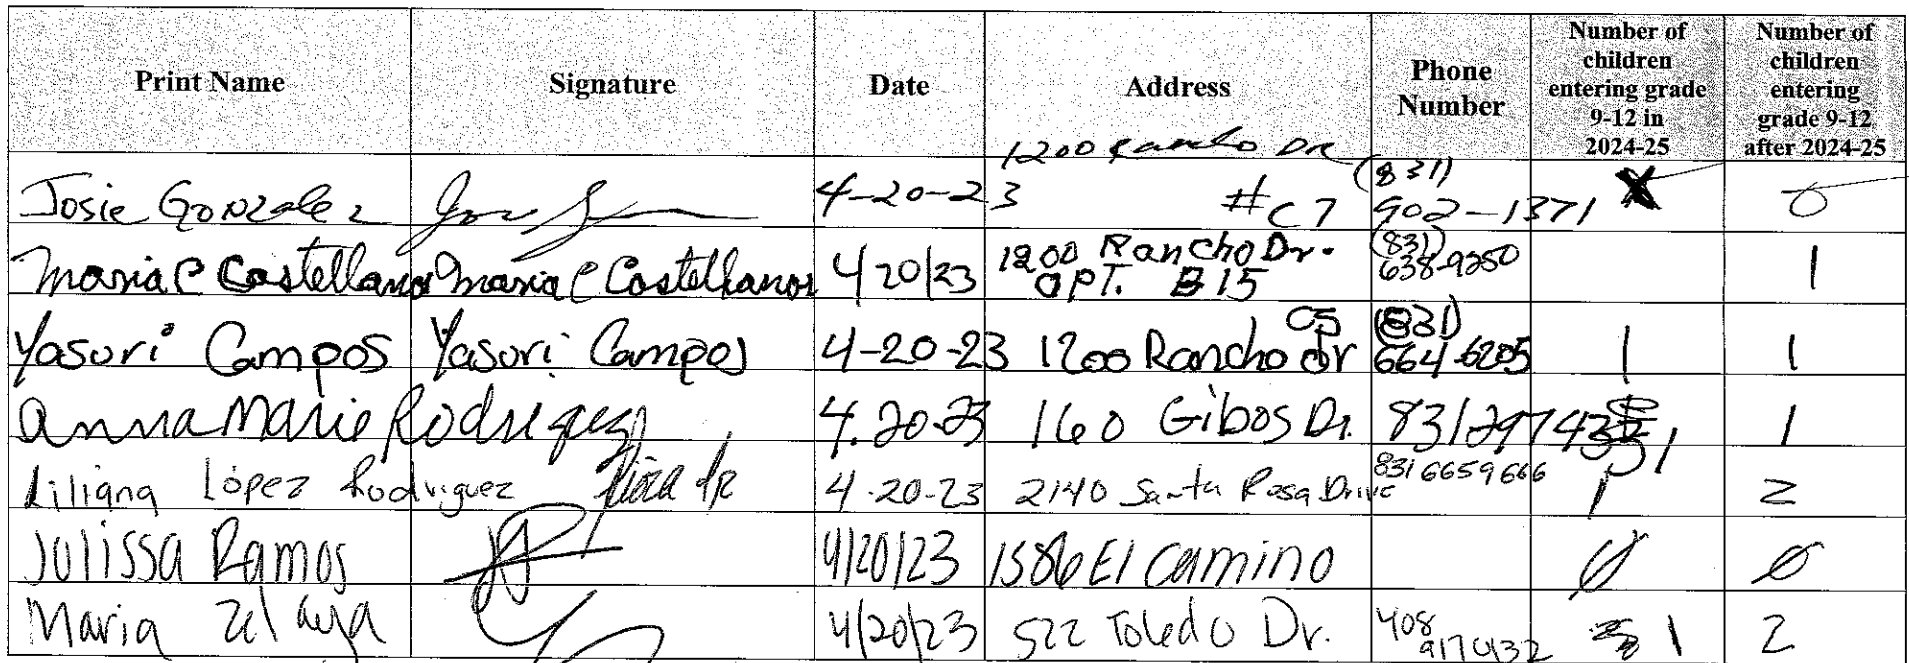 Print Name Signature Date Address Phone Number Number of children entering grade 9-12 in 2024-25 Number of children entering grade 9-12 after 2024-25
1200 Rancho Dr
Josie Gonzalez 4-20-23 #C7 (831) 902-1371 0
Maria C Castellanos Maria C Castellanos 4/20/23 1200 Rancho Dr. APT. B15 (831) 638-9250 1
Yasuri Campos Yasuri Campos 4-20-23 1200 Rancho dr C5 (831) 664-6205 1 1
Anna Marie Rodriguez 4.20-23 160 Gibos Dr. 1
Liliana López Rodriguez 4-20-23 2140 Santa Rosa Drive 831 6659666 1 2
Julissa Ramos 4/20/23 1586 El Camino 0 0
Maria Zelaya 4/20/23 522 Toledo Dr. 408 1 2